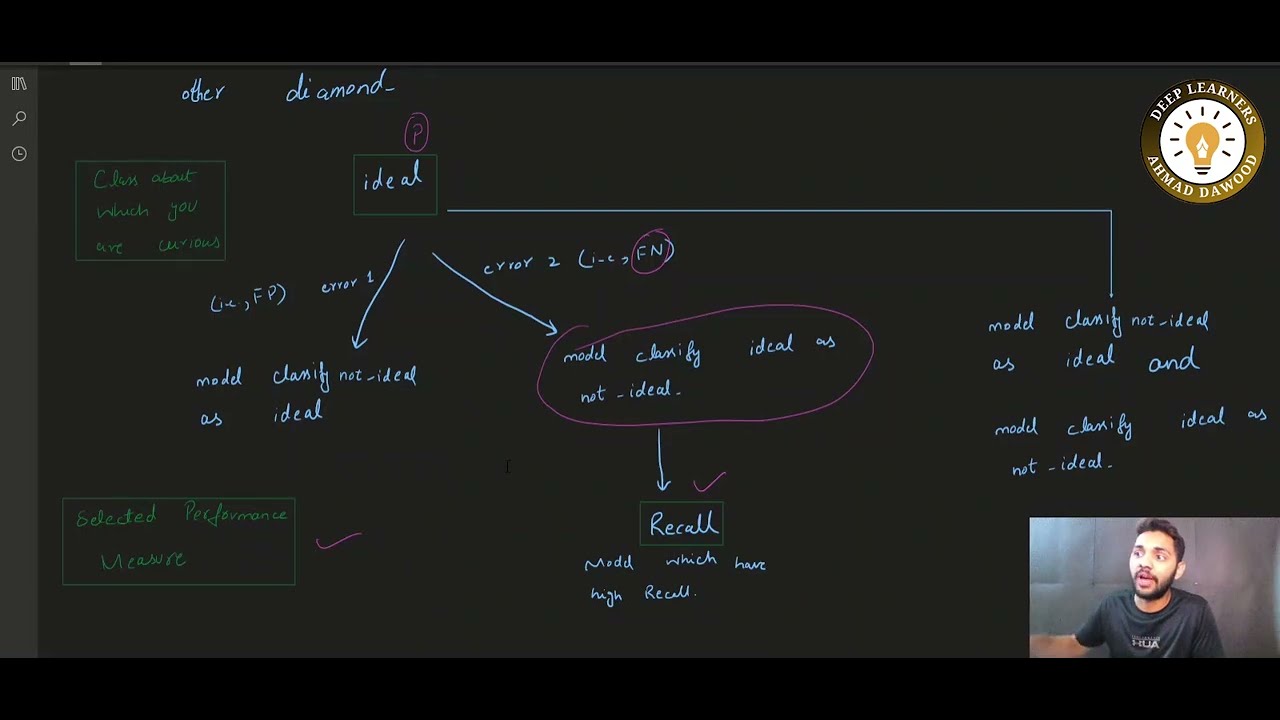 other diamond-
P
ideal
Class about
which you
are curious
error 2 (i.e., FN)
(i.e., FP) error 1
model classify not-ideal
as ideal
model classify ideal as
not-ideal.
model classify not-ideal
as ideal and
model classify ideal as
not-ideal.
Selected Performance
Measure
Recall
Model which have
high Recall.
DEEP LEARNERS
AHMAD DAWOOD
HUA